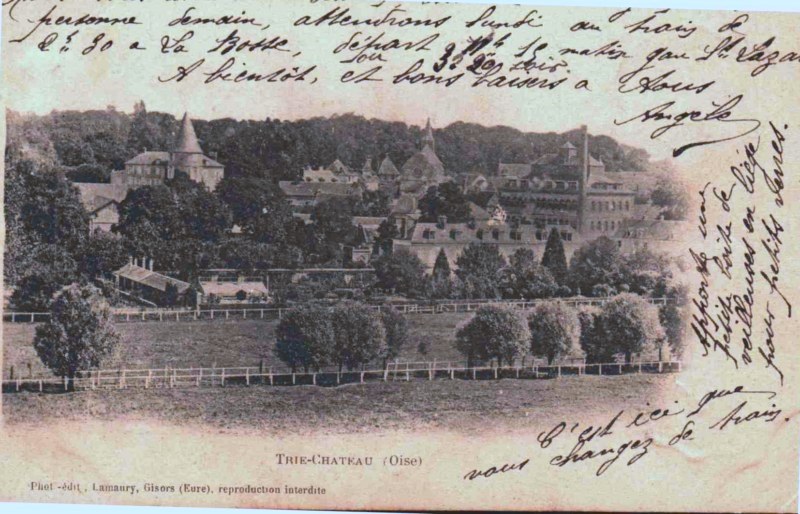 personne demain, attendrons lundi au train de
2h 30 a La Bosse, départ Mt 15 matin gare St Lazar
ou 3h 20 soir
A bientôt, et bons baisers a vous
Angèle
Apporte une
petite boite de
veilleuses en liège
pour petits verres.
C'est ici que
vous changez de train.
TRIE-CHATEAU (Oise)
Phot-édit, Lamaury, Gisors (Eure), reproduction interdite